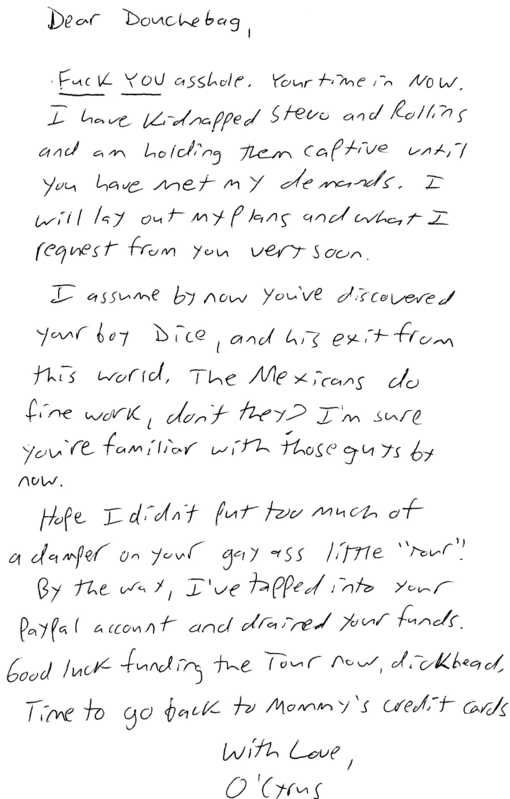 Dear Douchebag,
Fuck You asshole. Your time in Now.
I have Kidnapped Stevo and Rollins
and am holding them captive until
you have met my demands. I
will lay out my plans and what I
request from you very soon.
I assume by now you've discovered
your boy Dice, and his exit from
this world. The Mexicans do
fine work, don't they? I'm sure
you're familiar with those guys by
now.
Hope I didn't put too much of
a damper on your gay ass little "Tour"!
By the way, I've tapped into your
PayPal account and drained your funds.
Good luck funding the Tour now, dickhead.
Time to go back to Mommy's credit cards
With Love,
O'Cyrus